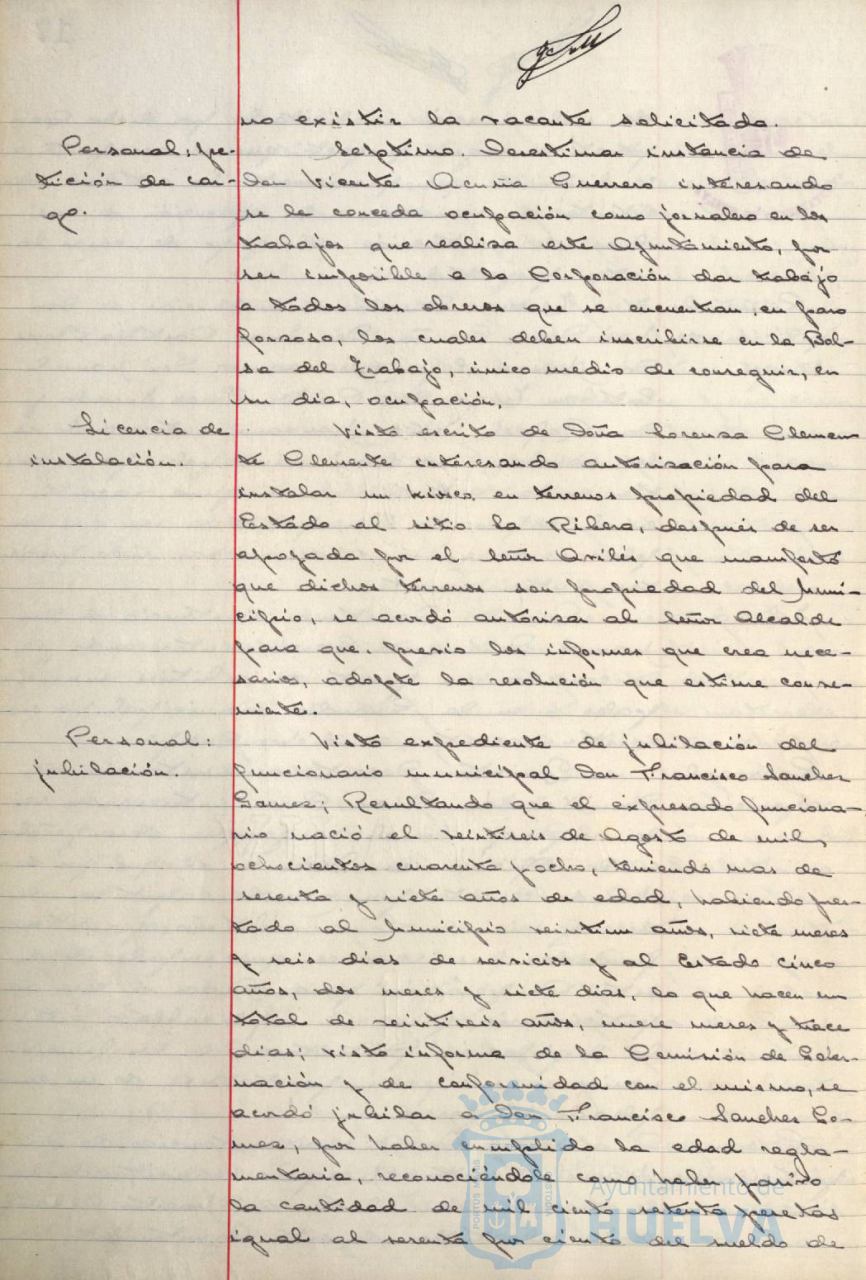 no existir la vacante solicitada.
Personal; pe-
tición de car-
go.
Septimo. Desestimar instancia de
Don Vicente Acuña Guerrero interesando
se le conceda ocupación como jornalero en los
trabajos que realiza este Ayuntamiento, por
ser imposible a la Corporación dar trabajo
a todos los obreros que se encuentran, en paro
forzoso, los cuales deben inscribirse en la Bol-
sa del Trabajo, único medio de conseguir, en
su dia, ocupación.
Licencia de
instalación.
Visto escrito de Doña Lorenza Clemen-
te Clemente interesando autorización para
instalar un kiosco en terrenos propiedad del
Estado al sitio la Ribera, después de ser
apoyada por el Señor Avilés que manifestó
que dichos terrenos son propiedad del Muni-
cipio, se acordó autorizar al Señor Alcalde
para que, previo los informes que crea nece-
sarios, adopte la resolución que estime conve-
niente.
Personal:
jubilación.
Visto expediente de jubilación del
funcionario municipal Don Francisco Sanchez
Gomez; Resultando que el expresado funciona-
rio nació el veintiseis de Agosto de mil
ochocientos cuarenta y ocho, teniendo mas de
sesenta y siete años de edad, habiendo pres-
tado al Municipio veintiun años, siete meses
y seis dias de servicios y al Estado cinco
años, dos meses y siete dias, lo que hacen un
total de veintiseis años, nueve meses y trece
dias; visto informe de la Comisión de Gober-
nación y de conformidad con el mismo, se
acordó jubilar a Don Francisco Sanchez Go-
mez, por haber cumplido la edad regla-
mentaria, reconociéndole como haber pasivo
la cantidad de mil ciento setenta pesetas
igual al sesenta por ciento del sueldo de
Ayuntamiento de
HUELVA